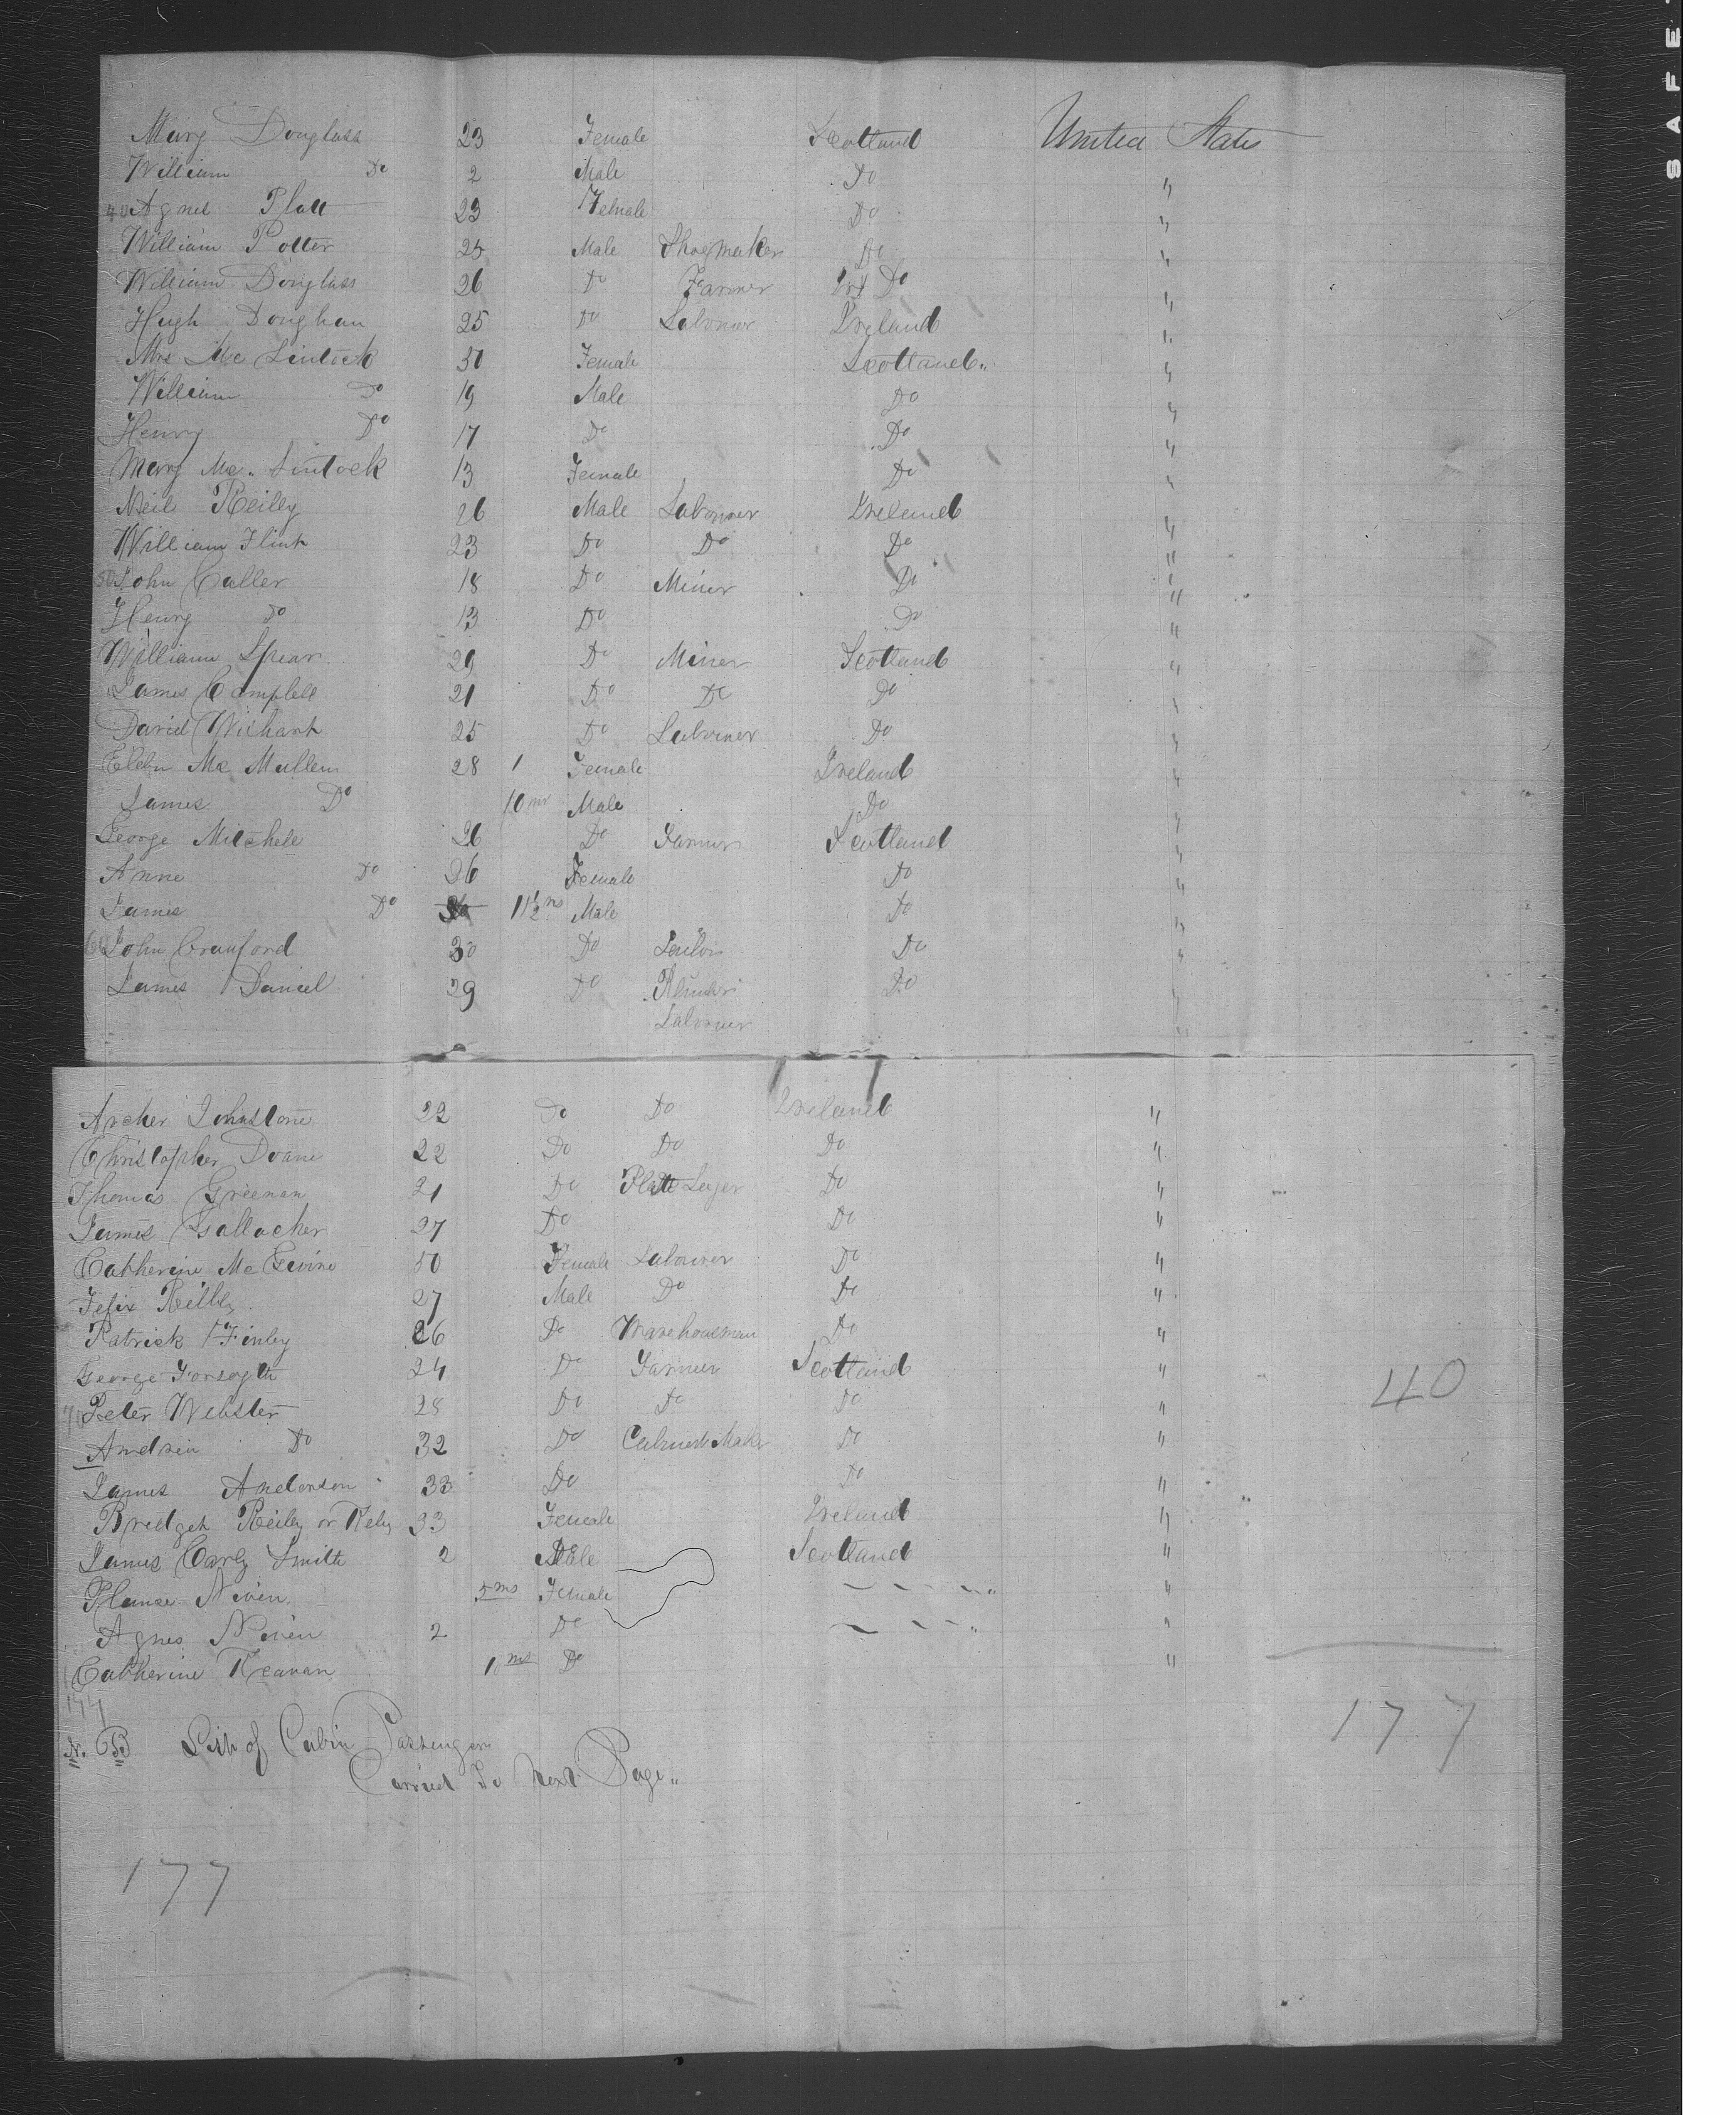 Mary Douglass 23 Female Scotland United States
William Do 2 Male Do "
40 Agnes Platt 23 Female Do "
William Potter 25 Male Shoemaker Do "
William Douglass 26 Do Farmer Do "
Hugh Doughan 25 Do Labourer Ireland "
Mrs Mc Lintock 50 Female Scotland "
William Do 19 Male Do "
Henry Do 17 Do Do "
Mary Mc. Lintock 13 Female Do "
Neil Reilly 26 Male Labourer Ireland "
William Flint 23 Do Do Do "
50 John Caller 18 Do Miner Do "
Henry Do 13 Do Do "
William Spear 29 Do Miner Scotland "
James Campbell 21 Do Do Do "
David Wishart 25 Do Labourer Do "
Ellen Mc Mullen 28 1 Female Ireland "
James Do 10 ms Male Do "
George Mitchell 26 Do Farmer Scotland "
Anne Do 26 Female Do "
James Do 1 1/2 ms Male Do "
60 John Crawford 30 Do Do "
James Daniel 29 Do Do "
Labourer "
Archer Johnstone 22 Do Do Ireland "
Christopher Doane 22 Do Do Do "
Thomas Greenan 21 Do Plate Layer Do "
James Gallacher 27 Do Do "
Catherine Mc Givine 50 Female Labourer Do "
Felix Reilly 27 Male Do Do "
Patrick Finley 26 Do Warehouseman Do "
George Forsyth 24 Do Farmer Scotland " 40
70 Peter Webster 28 Do Do Do "
Andrew Do 32 Do Cabinet Maker Do "
James Anderson 33 Do Do "
Bredget Reily or Rely 33 Female Ireland "
James Carly Smith 2 Male Scotland "
Niven 5 ms Female "
Agnes Niven 2 Do "
Catherine Keavan 1 ms Do "
177 177
N. B List of Cabin Passengers
Carried To Next Page "
177
SAFE